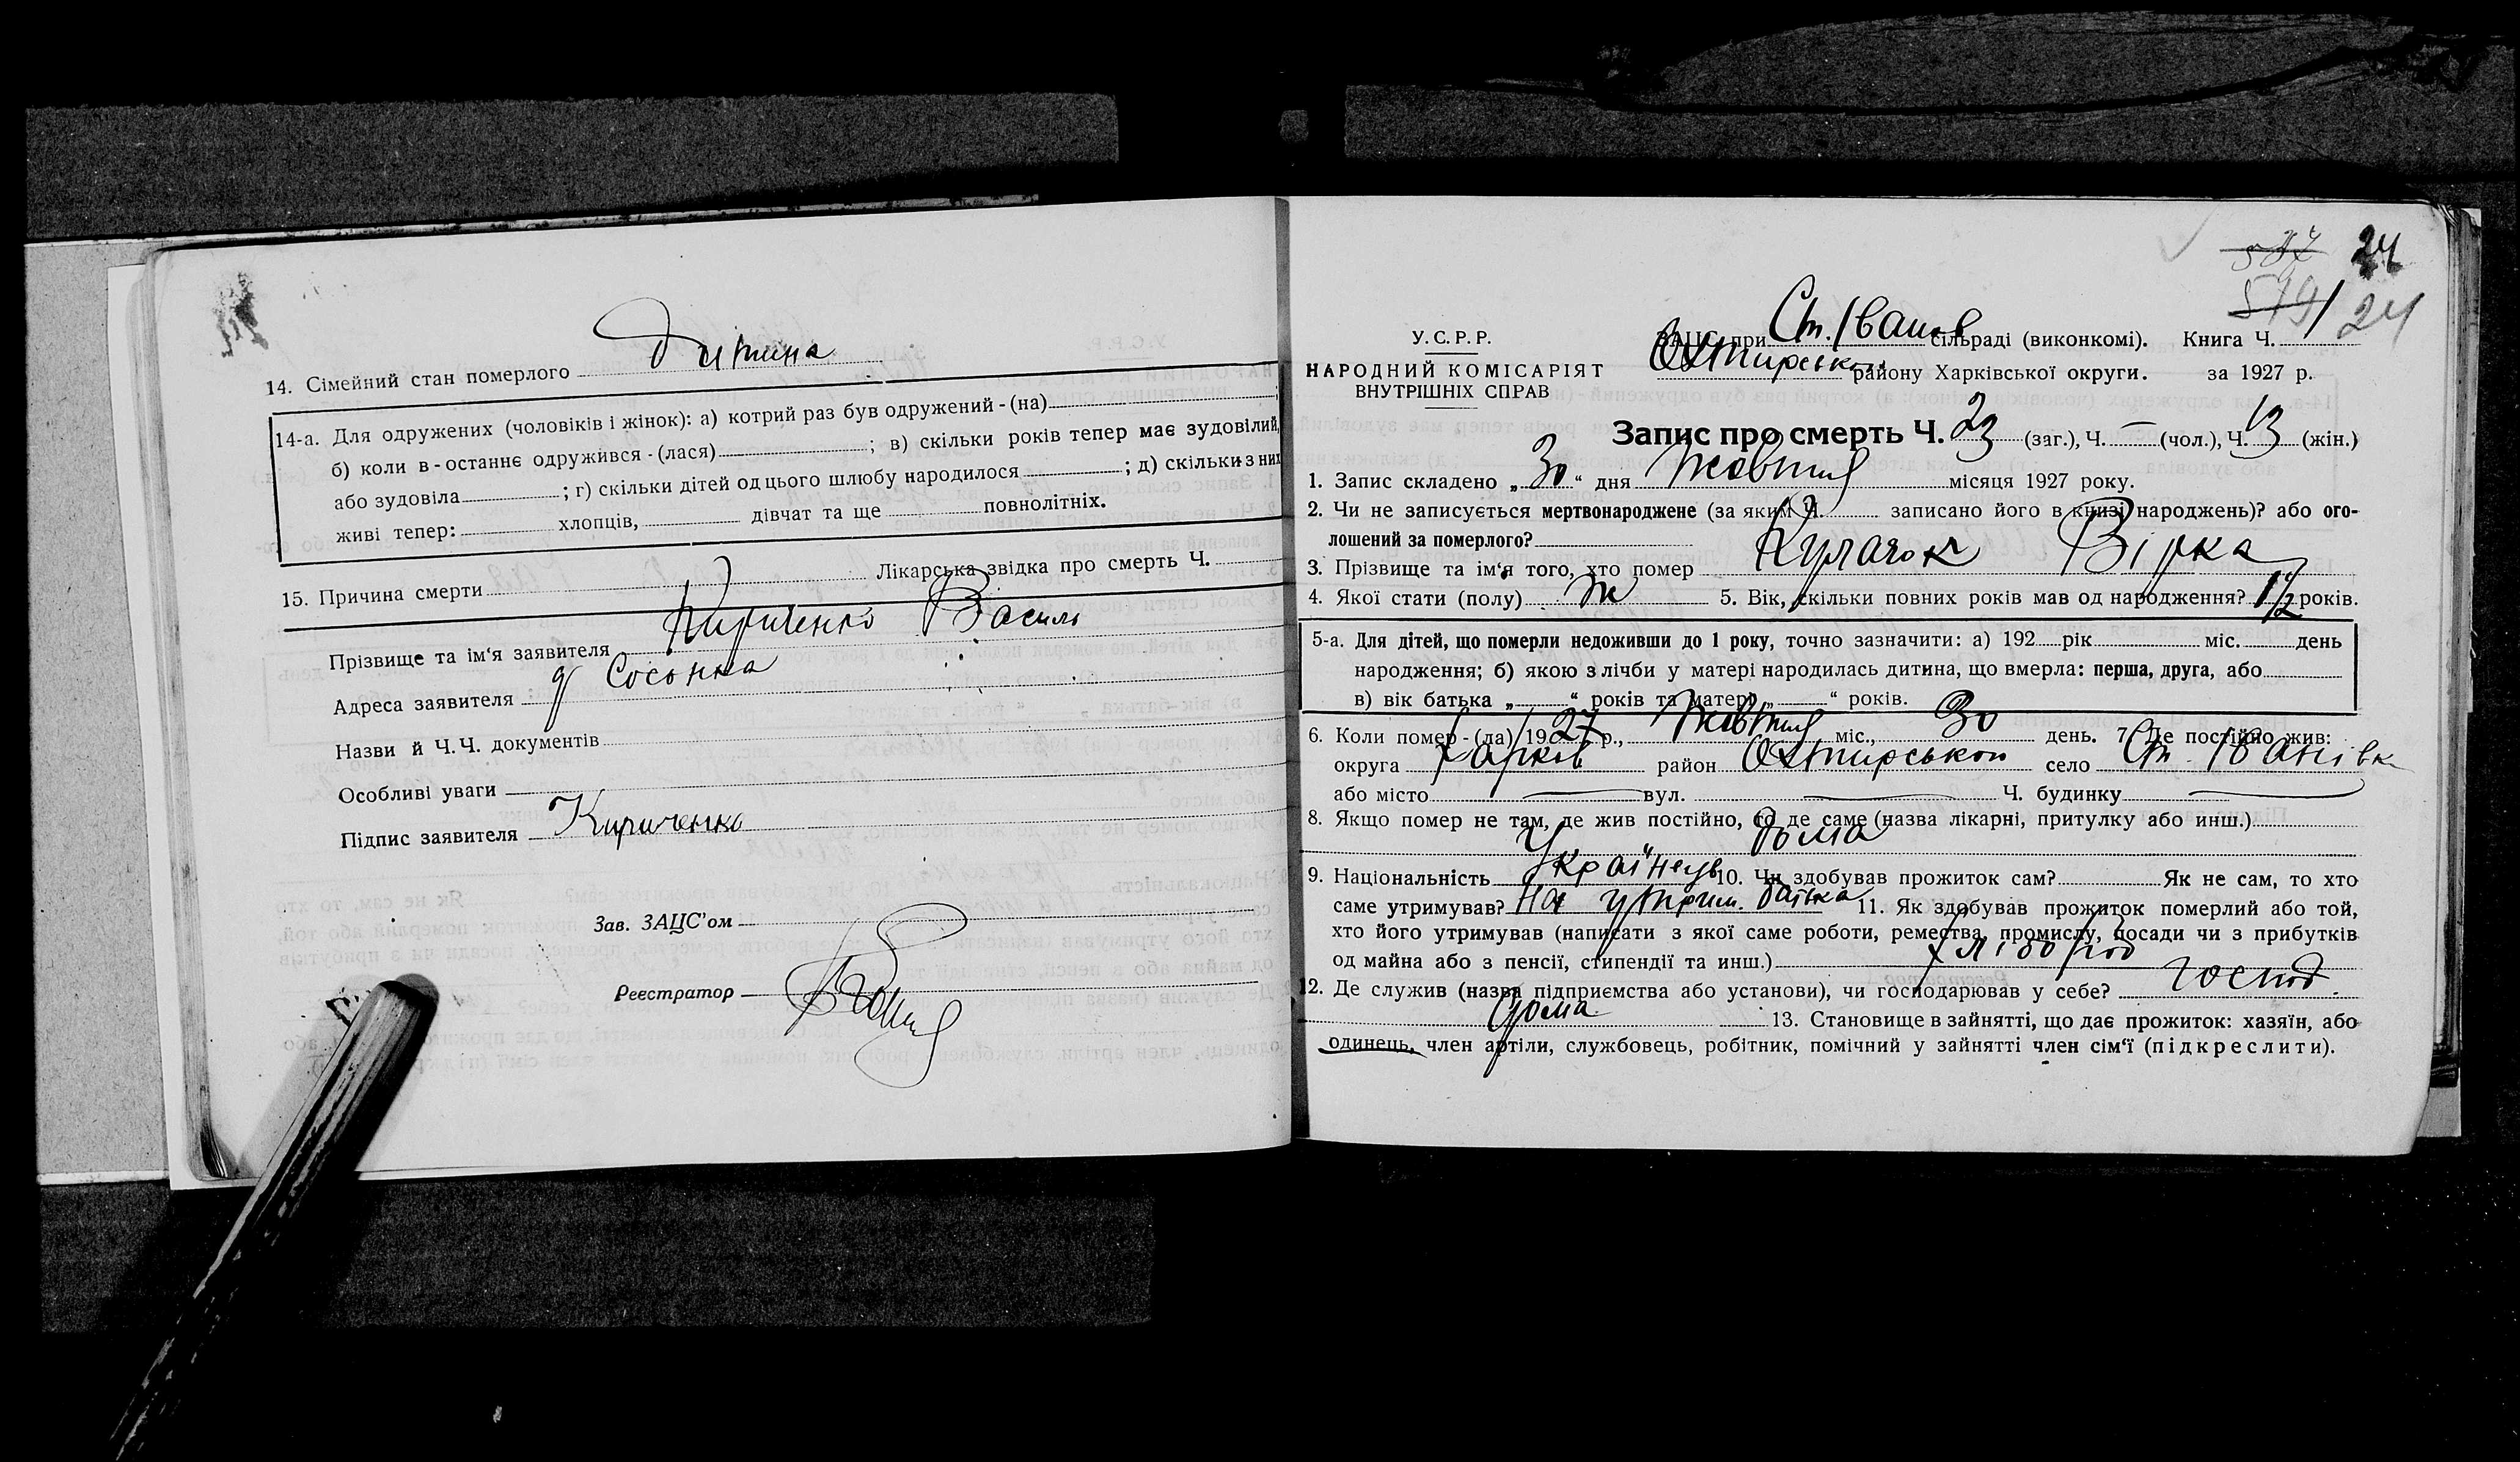 14. Сімейний стан померлого Дитина
14-а. Для одружених (чоловіків і жінок): а) котрий раз був одружений - (на)
б) коли в - останнє одружився - (лася) ; в) скільки років тепер має зудовілий,
або зудовіла ; г) скільки дітей од цього шлюбу народилося ; д) скільки з них
живі тепер: хлопців, дівчат та ще повнолітніх.
15. Причина смерти Лікарська звідка про смерть Ч.
Прізвище та ім'я заявителя Кириченко Василь
Адреса заявителя Сосонка
Назви й Ч.Ч. документів
Особливі уваги
Підпис заявителя Кириченко
Зав. ЗАЦС'ом
Реєстратор
24
24
У.С.Р.Р.
НАРОДНИЙ КОМІСАРІЯТ
ВНУТРІШНІХ СПРАВ
ЗАЦС при Ст. Іванов сільраді (виконкомі). Книга Ч.
Охтирськ. району Харківської округи. за 1927 р.
Запис про смерть Ч. 23 (заг.), Ч. — (чол.), Ч. 13 (жін.)
1. Запис складено „ 30 “ дня Жовтня місяця 1927 року.
2. Чи не записується мертвонароджене (за яким Ч. записано його в книзі народжень)? або ого-
лошений за померлого?
3. Прізвище та ім'я того, хто помер Кулачок Вірка
4. Якої стати (полу) Ж 5. Вік, скільки повних років мав од народження? 1 1/2 років.
5-а. Для дітей, що померли недоживши до 1 року, точно зазначити: а) 192 рік міс. день
народження; б) якою з лічби у матері народилась дитина, що вмерла: перша, друга, або
в) вік батька „ “ років та матері „ “ років.
6. Коли помер - (ла) 1927 р., Жовтня міс., 30 день. 7. Де постійно жив:
округа Харків район Охтирськой село Ст. Іванівка
або місто — вул. — Ч. будинку —
8. Якщо помер не там, де жив постійно, то де саме (назва лікарні, притулку або инш.)
дома
9. Національність Українець 10. Чи здобував прожиток сам? Як не сам, то хто
саме утримував? На утрим. батька 11. Як здобував прожиток померлий або той,
хто його утримував (написати з якої саме роботи, ремества, промислу, посади чи з прибутків
од майна або з пенсії, стипендії та инш.) Хлібороб
12. Де служив (назва підприємства або установи), чи господарював у себе? господ.
дома 13. Становище в зайнятті, що дає прожиток: хазяїн, або
одинець, член артіли, службовець, робітник, помічний у зайнятті член сім'ї (підкреслити).